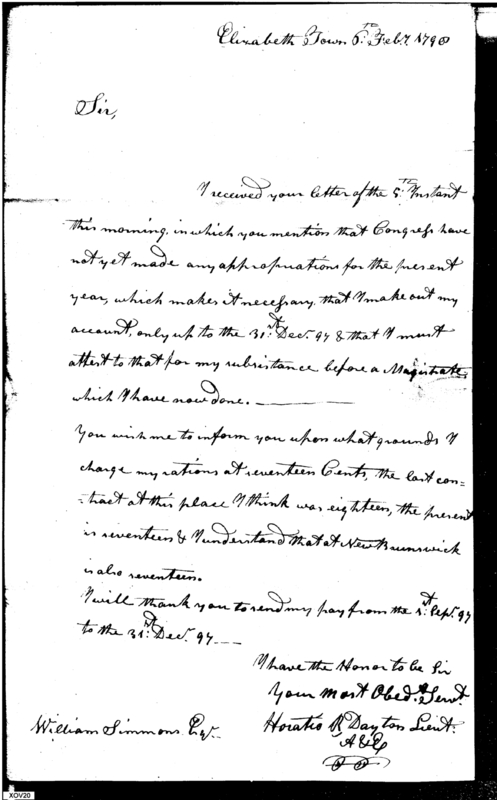 Elizabeth Town 6th Feby. 1798
Sir,
I received your letter of the 5th Instant
this morning, in which you mention that Congress have
not yet made any appropriations for the present
year, which makes it necessary, that I make out my
account, only up to the 31st. Decr. 97 & that I must
attest to that for my subsistance before a Magistrate
which I have now done.
You wish me to inform you upon what grounds I
charge my rations at seventeen Cents, the last con=
=tract at this place I think was eighteen, the present
is seventeen & I understand that at New Brunswick
is also seventeen.
I will thank you to send my pay from the 1st. Sepr. 97
to the 31st. Decr. 97
I have the Honor to be Sir
Your Most Obedt. Servt.
Horatio R Dayton Lieut.
A & E
William Simmons Esqr.
XOV20